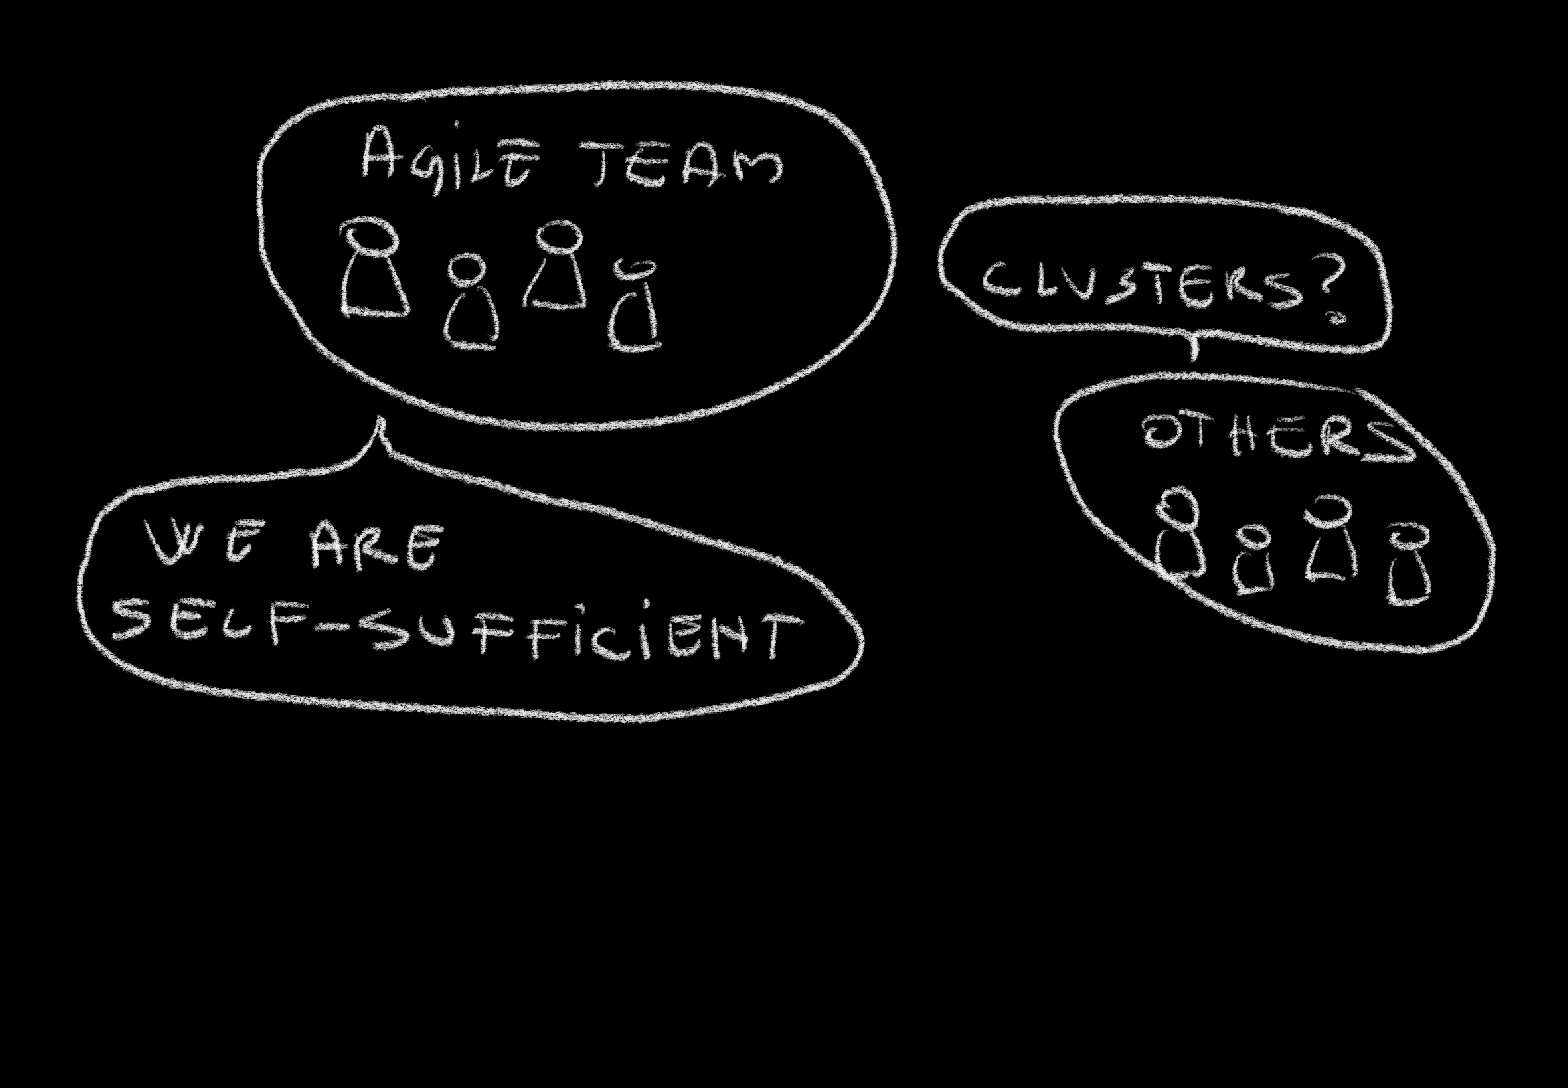 AGiLE TEAM
WE ARE
SELF-SUFFiCiENT
CLUSTERS?
OTHERS